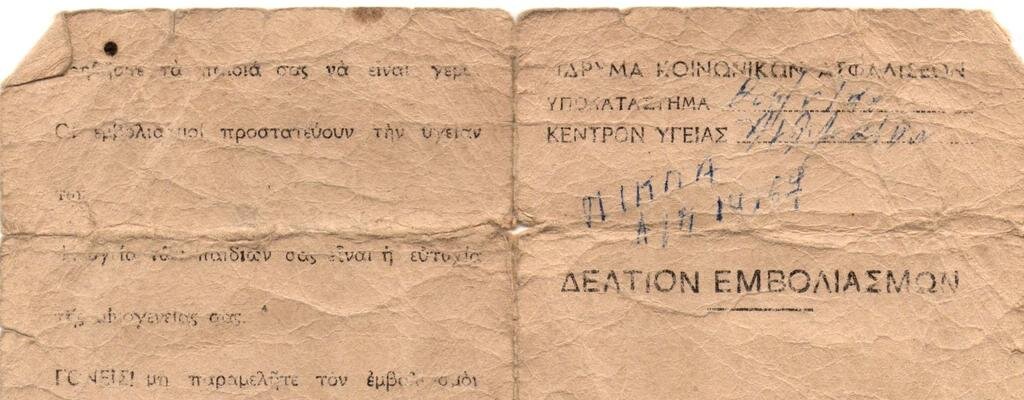 τὰ παιδιά σας νὰ εἶναι γερά.
Οἱ ἐμβολιασμοὶ προστατεύουν τὴν ὑγείαν
των
Ἡ ὑγεία τῶν παιδιῶν σας εἶναι ἡ εὐτυχία
τῆς οἰκογενείας σας.
ΓΟΝΕΙΣ! μὴ παραμελῆτε τὸν ἐμβολιασμὸ
ΙΔΡΥΜΑ ΚΟΙΝΩΝΙΚΩΝ ΑΣΦΑΛΙΣΕΩΝ
ΥΠΟΚΑΤΑΣΤΗΜΑ
ΚΕΝΤΡΟΝ ΥΓΕΙΑΣ
ΠΙΚΠΑ
ΔΕΛΤΙΟΝ ΕΜΒΟΛΙΑΣΜΩΝ